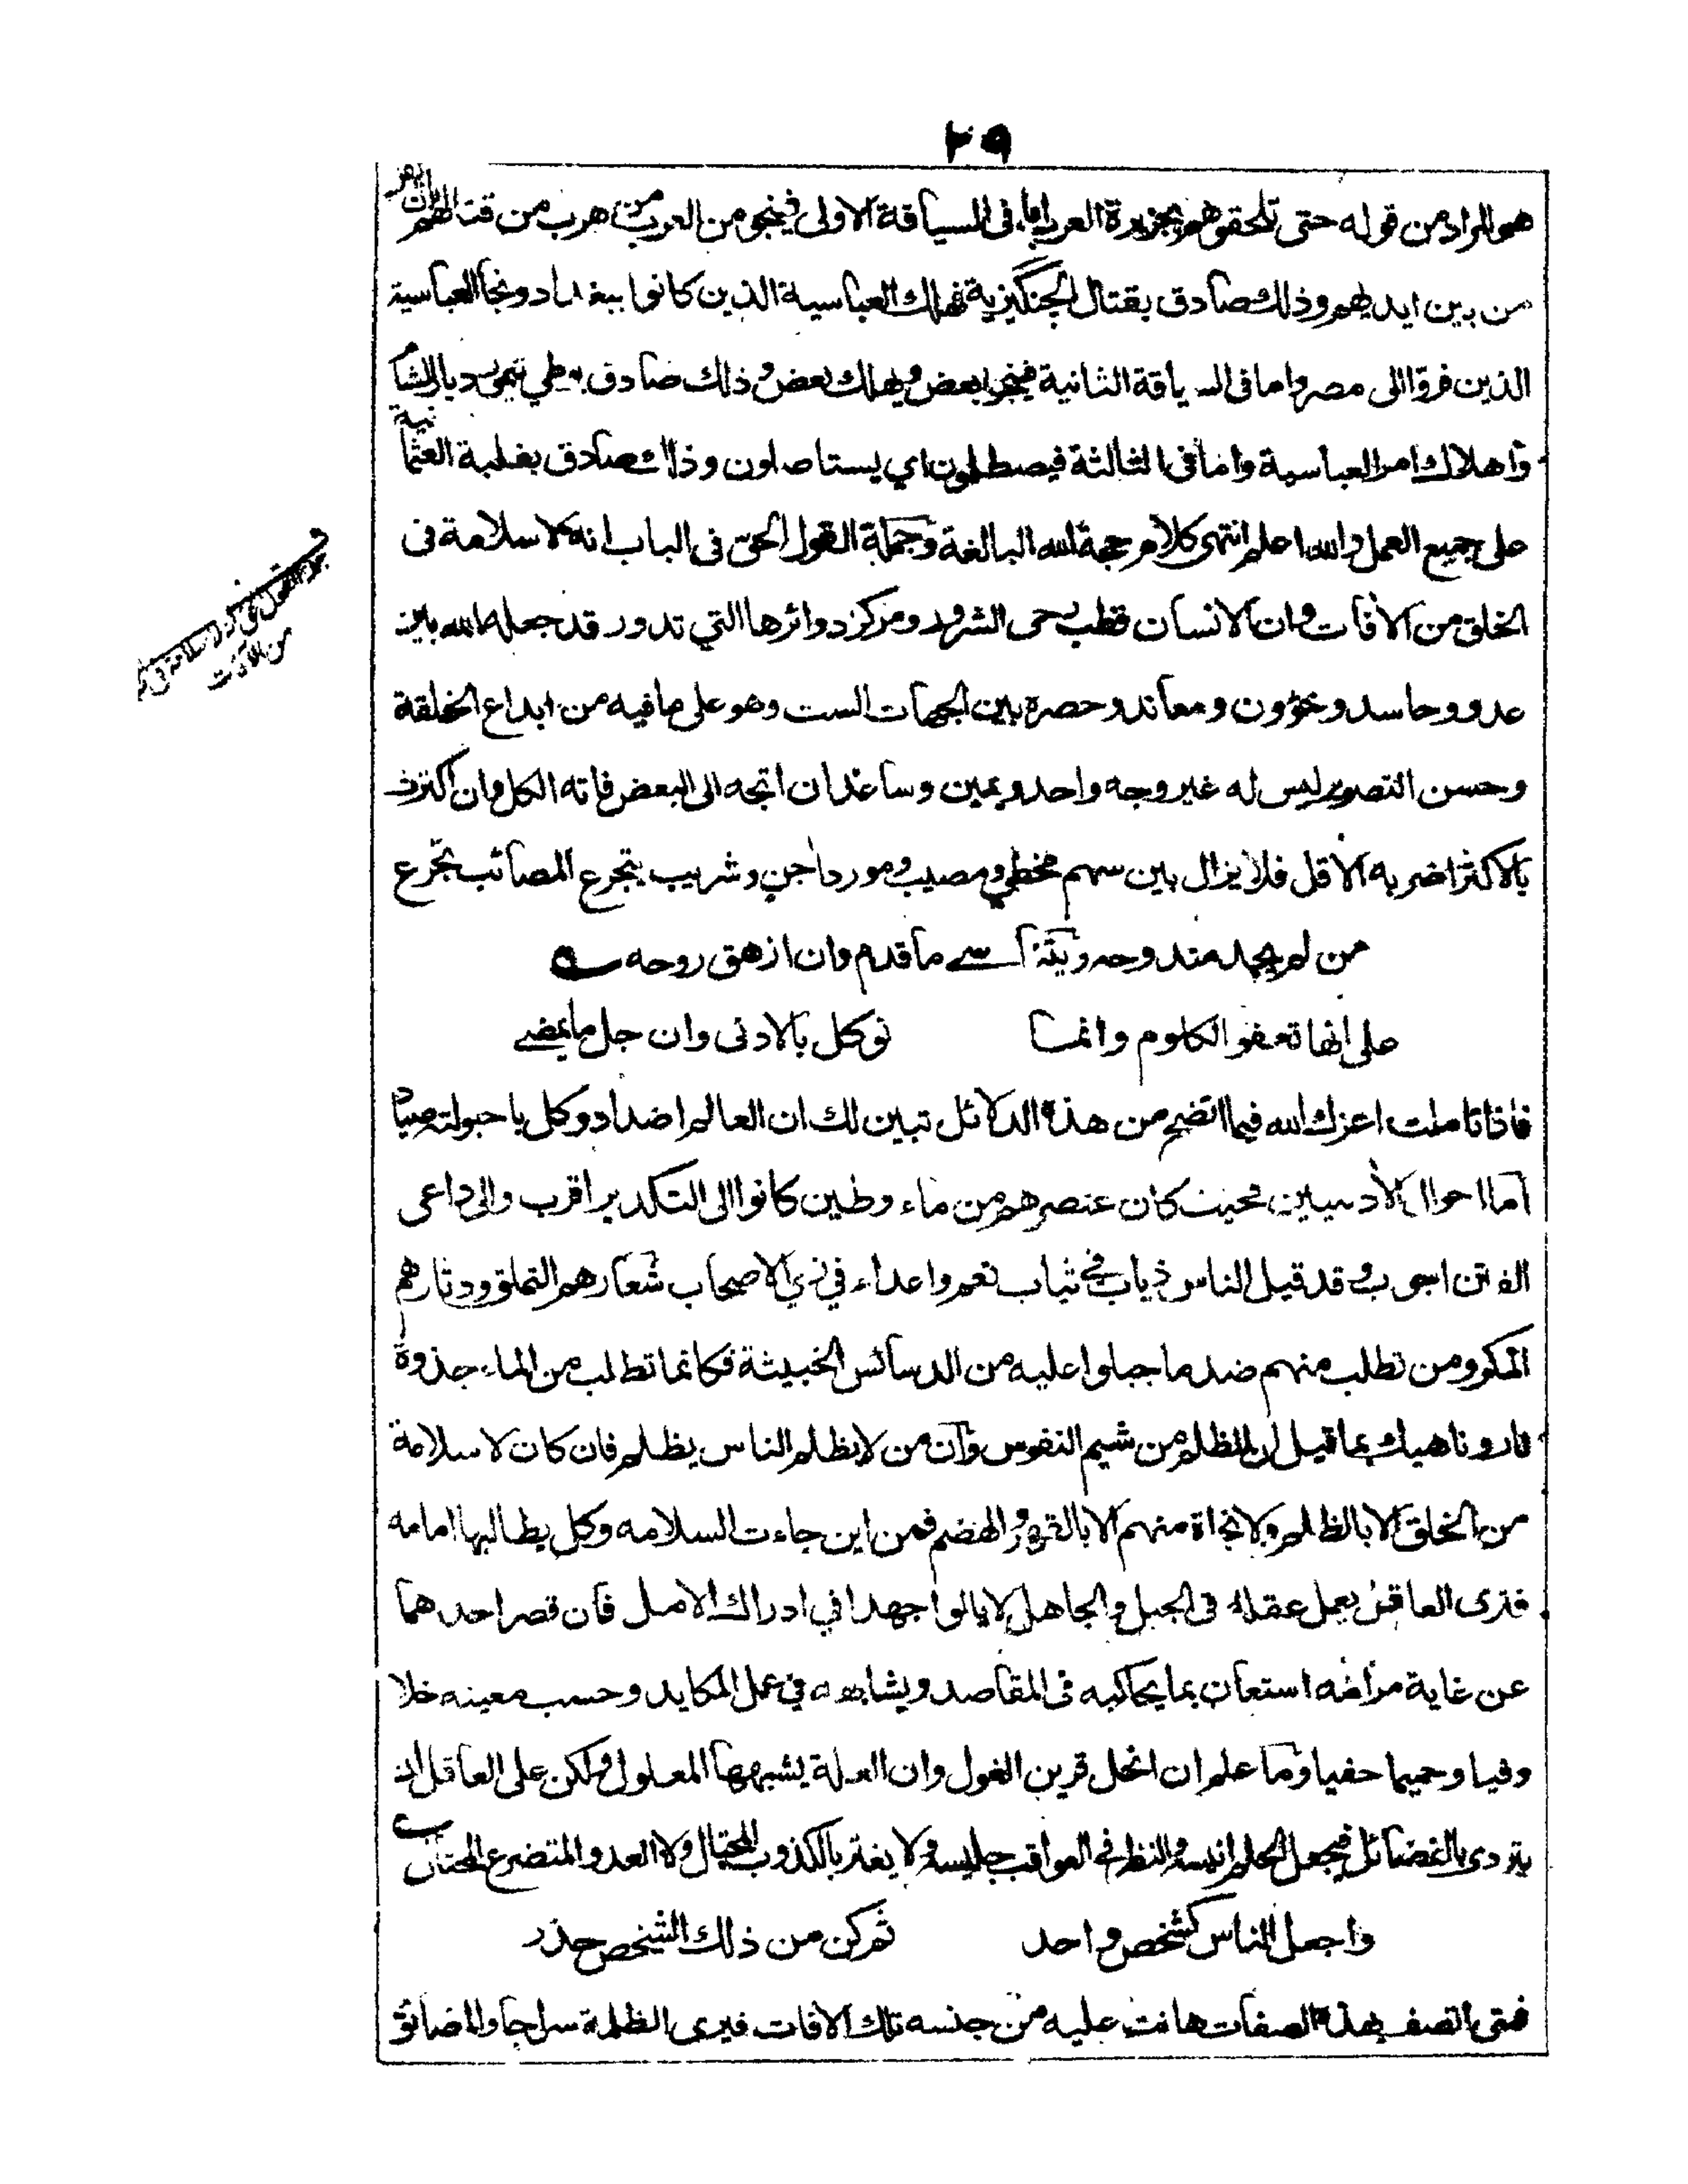 ٢٩
هو المراد من قوله حتى تلحقوهم بجزيرة العرب اما في السياقة الاولى فينجو من العرب من هرب من قتالهم
من بين ايديهم وذلك صادق بقتال الجنكيزية فهلك العباسية الذين كانوا ببغداد ونجا العباسية
الذين فروا الى مصر واما في السياقة الثانية فينجو بعض ويهلك بعض وذلك صادق بوطي تيمور ديار الشام
واهلاك امر العباسية واما في الثالثة فيصطلمون اي يستاصلون وذلك صادق بغلبة العثمانية
على جميع العمل والله اعلم انتهى كلام حجة الله البالغة وجملة القول الحق في الباب انه لا سلامة في
الخلق من الآفات وان الانسان قطب رحى الشرور ومركز دوائرها التي تدور قد جعله الله بين
عدو وحاسد وخؤون ومعاند وحصره بين الجهات الست وهو على ما فيه من ابداع الخلقة
وحسن التصوير ليس له غير وجه واحد ويمين وساعد ان اتجه الى البعض فاته الكل وان اكترث
بالاكثر اضر به الاقل فلا يزال بين سهم مخطي ومصيب ومورد اجن وشريب يتجرع المصائب تجرع
من لم يجد مندوحه ما قدم وان ازهق روحه
على انها تعفو الكلوم وانما نوكل بالادنى وان جل ما يمضي
فاذا تاملت اعزك الله فيما اتضح من هذه الدلائل تبين لك ان العالم اضداد وكل باحبولته صياد
اما احوال الآدميين فحيث كان عنصرهم من ماء وطين كانوا الى التكدير اقرب والى داعى
الفتن وقد قيل الناس ذياب في ثياب نعم واعداء في زي الاصحاب شعارهم التملق ودثارهم
المكر ومن تطلب منهم ضد ما جبلوا عليه من الدسائس الخبيثة فكانما تطلب من الماء جذوة
نار وناهيك بما قيل ان الظلم من شيم النفوس وان من لا يظلم الناس يظلم فان كان لا سلامة
من الخلق الا بالظلم ولا نجاة منهم الا بالقهر والهضم فمن اين جاءت السلامه وكل يطالبها امامه
فترى العاقل يعمل عقله في الحيل والجاهل لا يالوا جهدا في ادراك الامل فان قصر احدهما
عن غاية مرامه استعان بما يحاكيه في المقاصد ويشابهه في عمل المكايد وحسب معينه خلا
وفيا وحميما حفيا وما علم ان الخل قرين الغول وان العلة يشبهها المعلول ولكن على العاقل ان
يتردى بالفضائل فيجعل الحلم انيسه والنظر في العواقب جليسه ولا يغتر بالكذوب المحتال ولا العدو المتضرع
واجعل الناس كشخص واحد ثم كن من ذلك الشخص حذر
فمتى اتصف بهذه الصفات هانت عليه من جنسه تلك الآفات فيرى الظلمة سراجا والمضائق